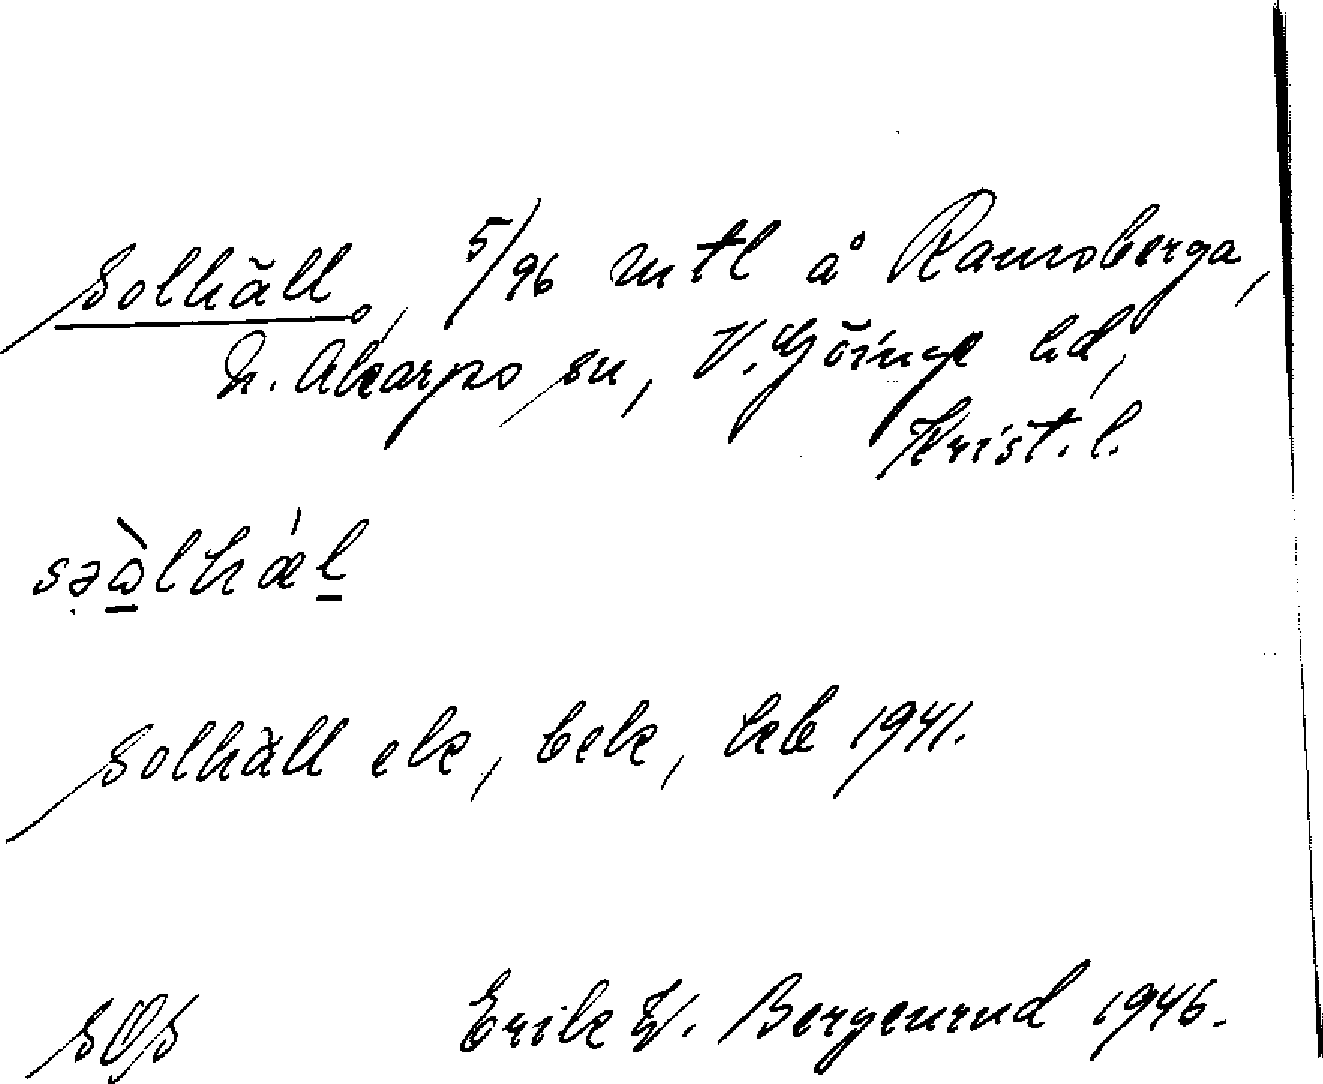 Solhäll, 5/96 mtl å Ramsberga,
N. Åkarps sn, V. Göinge hd,
Krist. l.
Solhäll ek, bek, kb 1941.
SOS Erik W. Bergenrud 1946.